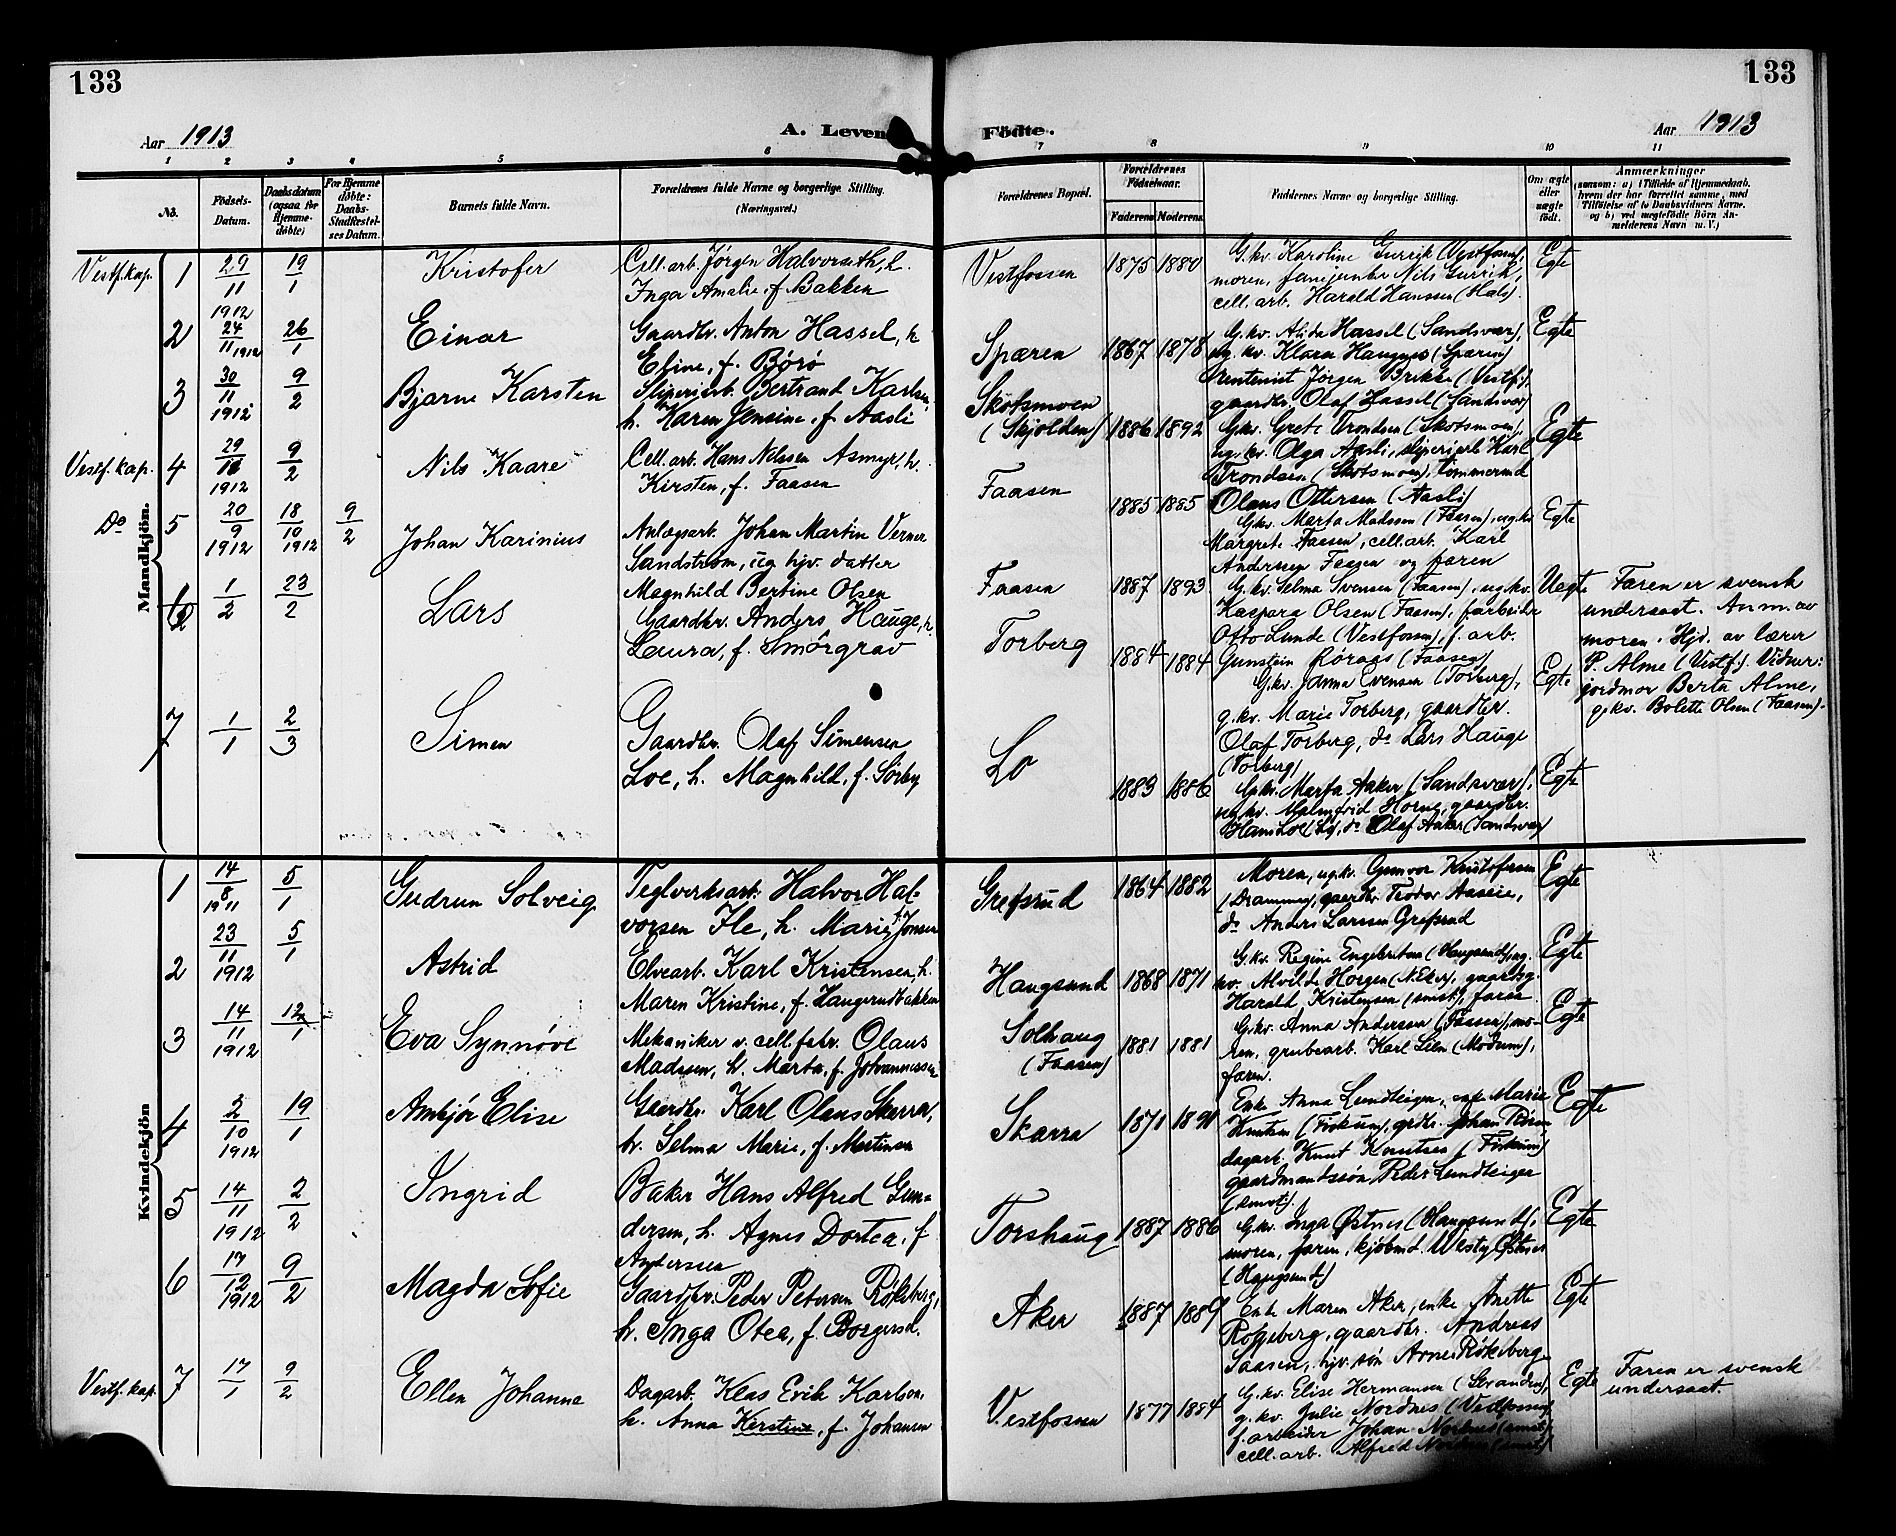 133
133
Aar 1913
A. Levende Födte.
Aar 1913
1 2 3 4 5 6 7 8 9 10 11
No.
Födsels-Datum.
Daabsdatum (ogsaa for Hjemme-döbte)
For Hjemme döbte: Daabs-Stadfæstelses Datum.
Barnets fulde Navn.
Forældrenes fulde Navne og borgerlige Stilling.
(Næringsvei.)
Forældrenes Bopæl.
Forældrenes Födselsaar.
Faderens Moderens
Faddernes Navne og borgerlige Stilling.
Om ægte eller uægte födt.
Anmærkninger
(saasom: a) i Tilfælde af Hjemmedaab, hvem der har forrettet samme, med Tilföielse af to Daabsvidners Navne, og b) ved uægtefödte Börn Anmelderens Navn m. V.)
Mandkjön.
Vestf. kap. 1 29/11 1912 19/1 Kristofer
Cell.arb. Jørgen Halvorseth, h.
Inga Amalie, f. Bakken
Vestfossen 1875 1880
G.kv. Karoline Gurrik (Vestfossen),
moren, furujunker Nils Gurrik,
cell. arb. Harald Hanssen (Hals).
Egte
2 24/11 1912 26/1 Einar
Gaardbr. Anton Hassel, h.
Eline, f. Børø
Spæren 1867 1878
G.kv. Alida Hassel (Sandsvær),
ug. kv. Klara Haugnes (Spæren)
rentenist Jörgen Brekke (Vestf.),
gaardbr. Olaf Hassel (Sandsvær)
Egte
3 30/11 1912 9/2 Bjarne Karsten
Sliperiarb. Bertrand Karlsen,
h. Karen Jensine, f. Aasli
Skotsmoen
(Skjolden) 1886 1892
G.kv. Grete Trondsen (Skotsmoen),
ug.kv. Olga Aasli, sliperiarb. Karl
Trondsen (Skotsmoen), tömmermd
Olaus Ottersen (Aasli)
Egte
Vestf. kap. 4 29/12 1912 9/2 Nils Kaare
Cell. arb. Hans Nilssen Asmyr, h.
Kirsten, f. Faasen
Faasen 1885 1885
G.kv. Marta Madssen (Faasen), ug.kv.
Margrete Faasen, cell.arb. Karl
Andersen Faasen og faren
Egte
Do 5 20/9 1912 18/10 1912 9/2 Johan Karinius
Anlægsarb. Johan Martin Verner
Sandström, ug. hjv. datter
Magnhild Bertine Olsen
Faasen 1887 1893
G.kv. Selma Svensen (Faasen), ug.kv.
Kaspara Olsen (Faasen), f.arbeider
Otto Lunde (Vestfossen), f. arb.
Gunstein Röraas (Faasen)
Uegte
Faren er svensk
undersaat. Anm. av
moren. Hjd. av lærer
P. Alme (Vestf.). Vidner:
jordmor Berta Alme,
g.kv. Bolette Olsen (Faasen).
6 1/2 23/2 Lars
Gaardbr. Anders Hauge, h.
Laura, f. Smörgrav
Torberg 1884 1884
G.kv. Anna Evensen (Torberg),
g.kv. Marie Torberg, gaardbr.
Olaf Torberg, do Lars Hauge
(Torberg)
Egte
7 1/1 2/3 Simen
Gaardbr. Olaf Simensen
Loe, h. Magnhild, f. Sörby
Lo 1883 1886
G.kv. Marta Aaker (Sandsvær),
ug.kv. Malmfrid Horne, gaardbr.
Hans Loe (Lo), do Olaf Aaker (Sandsvær)
Egte
Kvindekjön
1 14/8 1911 5/1 Gudrun Solveig
Teglverksarb. Halvor Hal-
vorsen Ile, h. Marie, f. Jonsen
Grefsrud 1864 1882
Moren, ug.kv. Gunvor Kristofersen
(Drammen), gaardbr. Teodor Aaseie,
do Anders Larssen Grefsrud
Egte
2 23/11 1912 5/1 Astrid
Elvearb. Karl Kristensen, h.
Maren Kristine, f. Haugsundbakken
Haugsund 1868 1871
G.kv. Regine Engebretsen (Haugsund), ug.
kv. Alvilde Horgen (N.Eker), gaardsg.
Harald Kristensen (smst.), faren
Egte
3 14/11 1912 12/1 Eva Synnöve
Mekaniker v. cell. fabr. Olaus
Madssen, h. Marta, f. Johannessen
Solhaug
(Faasen) 1881 1881
G.kv. Anna Andersen (Faasen), mo-
ren, grubearb. Karl Lien (Modum),
faren.
Egte
4 2/10 1912 19/1 Ambjör Elise
Gaardbr. Karl Olaus Skarra,
h. Selma Marie, f. Martinsen
Skarra 1871 1891
Enke Anna Lundteigen, Marie
Knutsen (Fiskum), grdbr. Johan
dagarb. Knut Knutsen (Fiskum)
gaardmandssön Peder Lundteigen
(smst.)
Egte
5 14/11 1912 2/2 Ingrid
Baker Hans Alfred Gun-
dersen, h. Agnes Dortea, f.
Andersen
Torshaug 1887 1886
G.kv. Inga Østnes (Haugsund),
moren, faren, kjöbmd. Westy Østnes
(Haugsund)
Egte
6 17/12 1912 9/2 Magda Sofie
Gaardbr. Peder Petersen Rökeberg,
h. Inga Otea, f. Borgersd.
Aker 1887 1889
Enke Maren Aker, enke Anette
Rökeberg, gaardbr. Andreas
Saasen, hjv. sön Arne Rökeberg
Egte
Vestf. kap. 7 17/1 9/2 Ellen Johanne
Dagarb. Klas Erik Karlson,
h. Anna Kerstine, f. Johansen
Vestfossen 1877 1884
G.kv. Elise Hermansen (Stranden),
g.kv. Julie Nordnes (Vestfossen)
f. arbeider Johan Nordnes (smst.)
cell. arb. Alfred Nordnes (smst.)
Egte
Faren er svensk
undersaat.